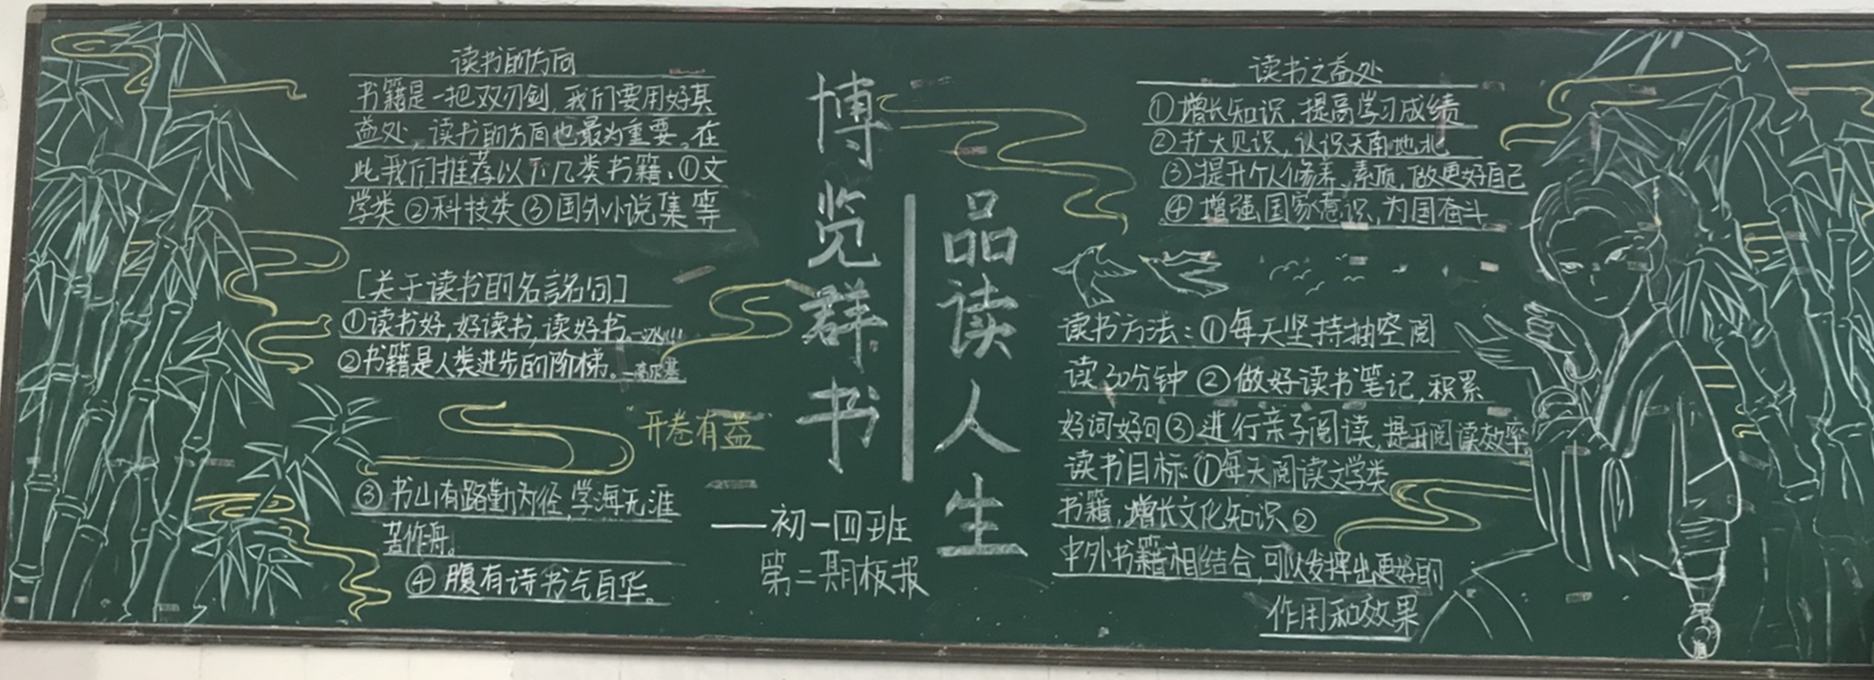 读书的方向
书籍是一把双刃剑,我们要用好其
益处,读书的方向也最为重要。在
此我们推荐以下几类书籍、①文
学类②科技类③国外小说集等
[关于读书的名言名句]
①读书好,好读书,读好书。—冰心
②书籍是人类进步的阶梯。—高尔基
"开卷有益"
③书山有路勤为径,学海无涯
苦作舟。
④腹有诗书气自华。
博览群书
品读人生
——初一四班
第二期板报
读书之益处
①增长知识,提高学习成绩
②扩大见识,认识天南地北
③提升个人修养,素质,做更好自己
④增强国家意识,为国奋斗
读书方法:①每天坚持抽空阅
读30分钟②做好读书笔记,积累
好词好句③进行亲子阅读,提升阅读效率
读书目标:①每天阅读文学类
书籍,增长文化知识②
中外书籍相结合,可以发挥出更好的
作用和效果